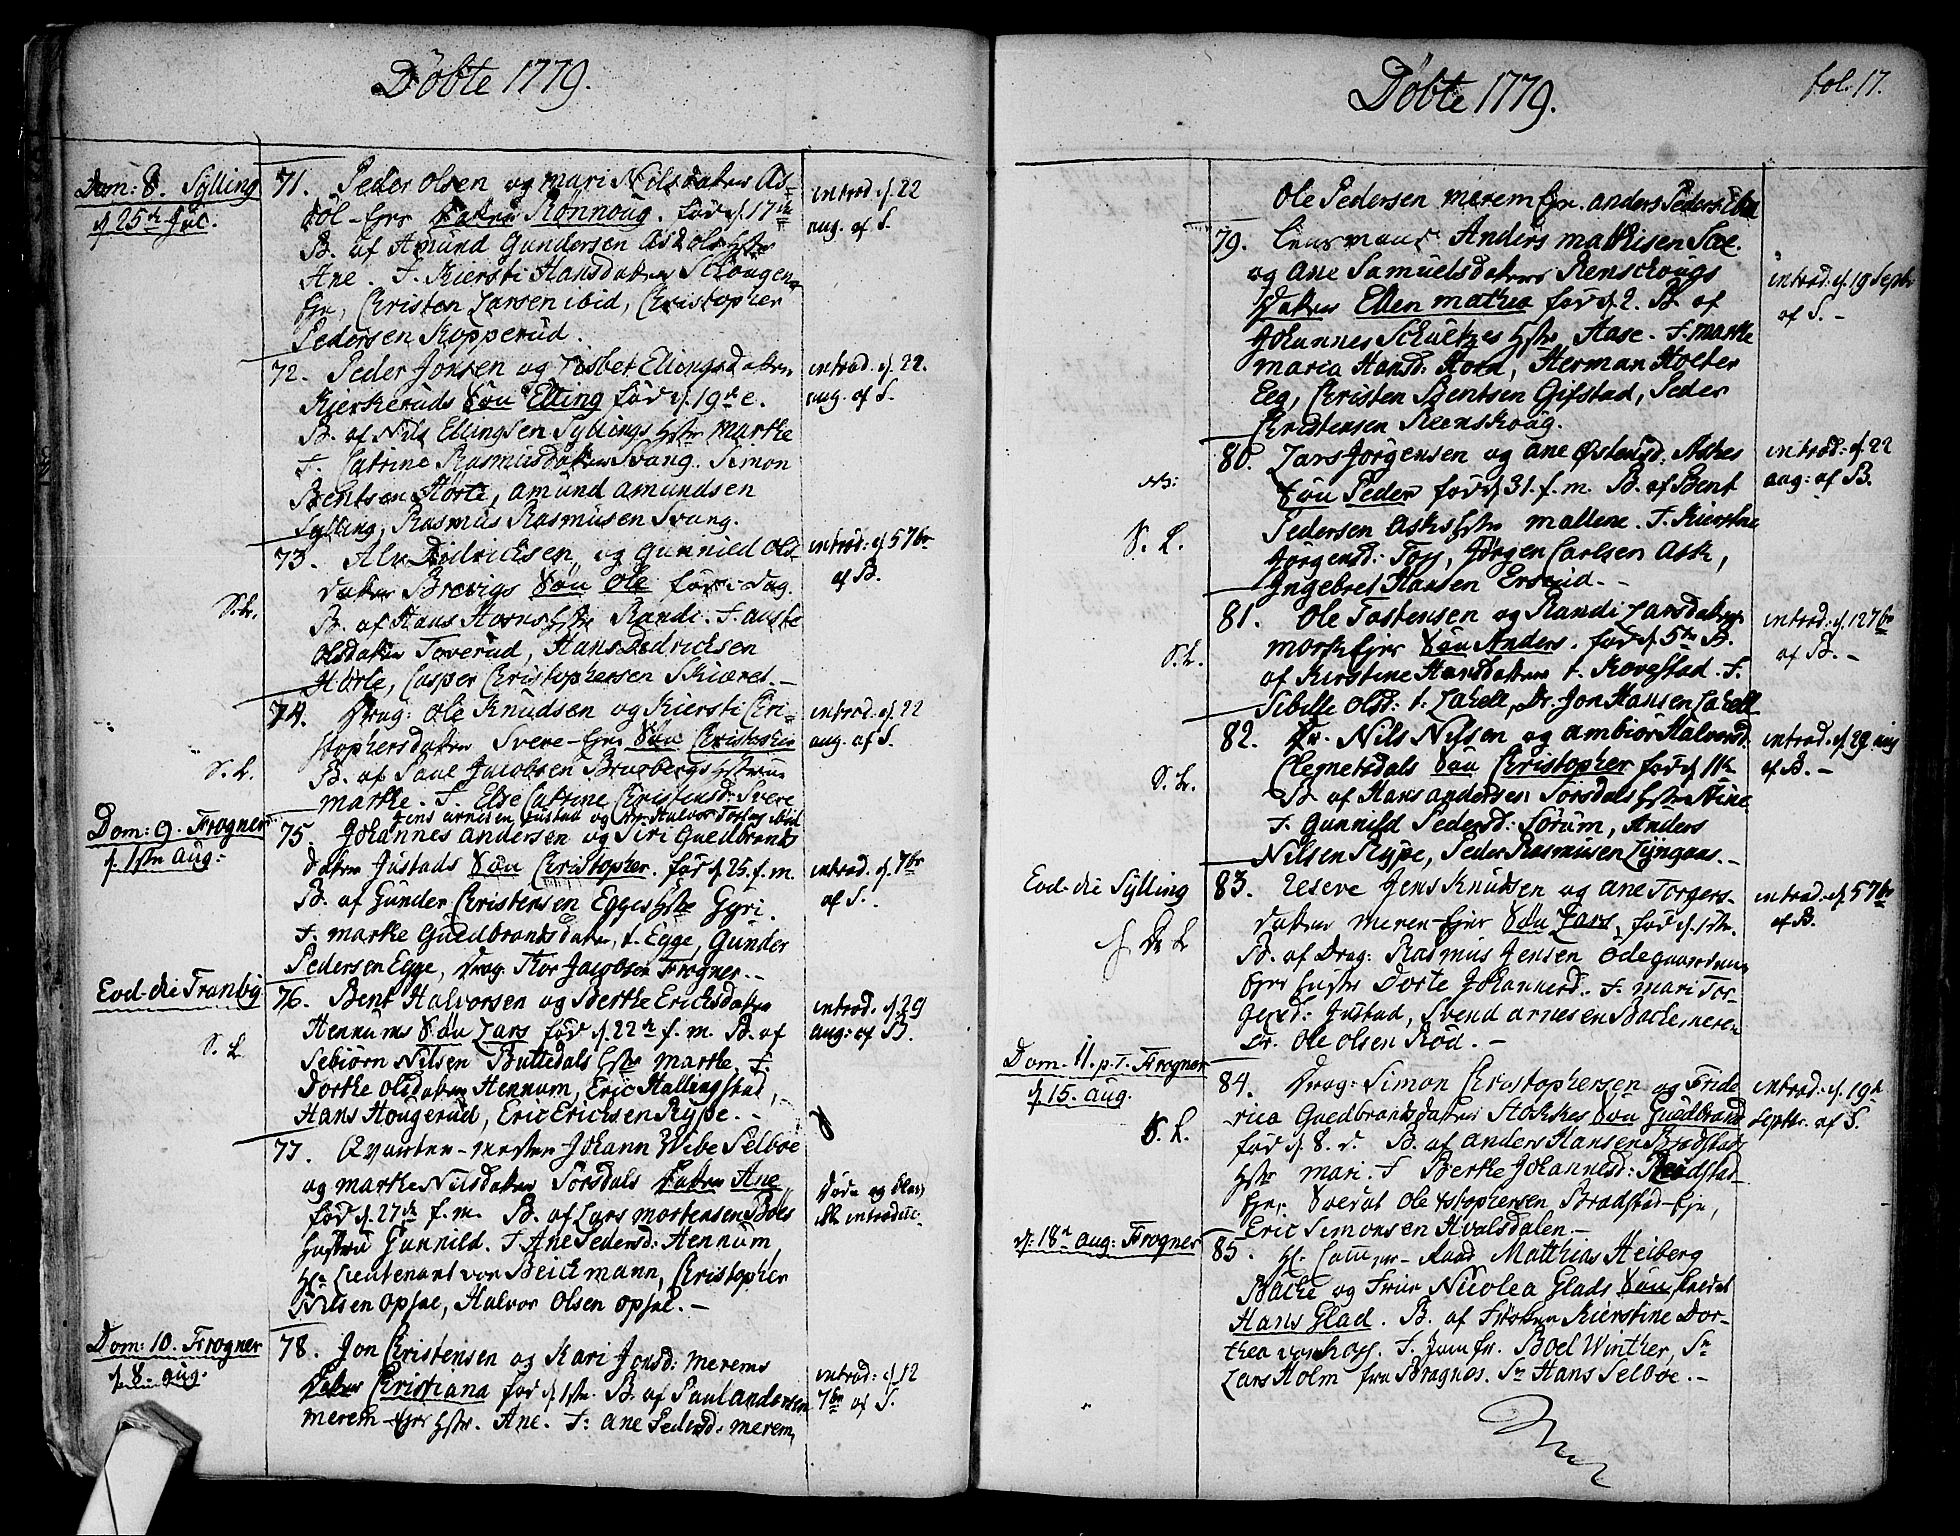 Döbte 1779.
Dom: 8. Sylling
d 25de Jul.
71. Peder Olsen og Mari Nilsdatter As-
döl-Ejer Datter Rönnoug. föd d. 17de
B. af Amund Gundersen Asdöls Hstr
Ane. F. Kiersti Hansdatter Schougen-
Eje, Christen Larsen ibid, Christopher
Pedersen Kopperud.
introd. d. 22
aug. af S.
72. Peder Jonsen og Lisbet Ellingsdatter
Kierkeruds Sön Elling föd d. 19de.
B. af Nils Ellingsen Syllings Hstr Marthe
F. Catrine Rasmusdatter Svang. Simon
Bentsen Hörte, Amund Amundsen
Sylling, Rasmus Rasmusen Svang.
introd. d. 22.
aug. af S.
73. Alv Didricksen og Gunnild Ols-
datter Brevigs Sön Ole föd i-dag.
B. af Hans Horns Hstr Randi. F. Aaste
Olsdatter Toverud, Hans Dedricksen
Hörte, Casper Christophersen Skiæret.-
S. L.
introd: d 5 7br
af B.
74. Drag: Ole Knudsen og Kiersti Chri-
stophersdatter Svere-Ejer Sön Christopher
B. af Paul Jacobsen Bragbergs Hstrue
Marthe. F. Else Catrine Christensd: Svere
Jens Arnesen Justad og Halvor ibid
S. L.
introd. d. 22
aug. af S.
Dom: 9. Frogner
d. 1ste aug:
75. Johannes Andersen og Siri Guedbrands
datter Justads Sön Christopher. föd d 25. f. m.
B. af Gunder Christensen Egges Hstr Gyri.
F. Marthe Guedbrandsdatter, t. Egge, Gunder
Pedersen Egge, Drag: Thor Jacobsen Frogner.-
introd. d. 7br
af S.
Eod-die Tranby
76. Bent Halvorsen og Berthe Ericksdatter
Hennums Sön Lars föd d. 22de f. m. B. af
Sebiörn Nilsen Buttedals Hstr Marthe, F.
Dorthe Olsdatter Hennum, Eric Hallingstad,
Hans Hougerud, Eric Ericksen Rype.-
S. L
introd. d. 29
aug: af B.
77. Qvarteer-mester Johann Wibe Selboe
og Marthe Nilsdatter Sörsdals Datter Ane,
föd d. 27de f. m. B. af Lars Mortensen Böes
Hustru Gunnild. F. Ane Pedersd: Hennum,
Hr. Lieutenant von Beichmann, Christopher
Nilsen Opsal, Halvor Olsen Opsal.-
Döde og blev
ikke introduc:
Dom: 10. Frogner
d. 8. aug.
78. Jon Christensen og Kari Jonsd: Merems
Datter Christiana föd d. 1ste. B. af Paul Andersen
Merem-Ejer Hstr. Ane. F. Ane Pedersd: Merem,
introd: d 12
7br af S.
Döbte 1779.
fol. 17.
Ole Pedersen Merem Eje. Anders Peders: ibid
79. Lensmand Anders Mathisen Sæ.
og Ane Samuelsdatters Renschougs
Datter Ellen Mathea föd d. 2. B. af
Johannes Schultzes Hstr Aase. F. Marthe
Maria Hansd: Horn, Herman Holter
Eeg, Christen Bentsen Gifstad, Peder
Christensen Reenskoug.
introd. d. 19 Septr
af S.-
80. Lars Jörgensen og Ane Östensd: Askes
Sön Peder föd d 31. f. m. B. af Bent
Pedersen Asks Hstr Mallene. F. Kierstine
Jörgensd: Foss, Jörgen Carlsen Ask,
Ingebret Hansen Ersrud.-
NB:
S. L.
introd: d 22
aug: af B.
81. Ole Tostensen og Randi Larsdatter
Mork Ejer Sön Anders. föd d. 5te B.
af Kirstine Hansdatter t. Kovestad. F.
Sibille Olsd: t. Lahell, Dr. Jon Hansen Lahell
S. L.
introd: d. 12 7br
af B.-
82. Dr. Nils Nilsen og Ambiör Halvorsd.
Clemetsdals Sön Christopher föd d 11te
B. af Hans Andersen Sörsdals Hstr Stine
F. Gunnild Pedersd: Sörum, Anders
Nilsen Rype, Peder Rasmusen Lyngaas.-
S. L.
introd. d. 29 aug
af B.-
Eod-die Sylling
83. Reserve Jens Knudsen og Ane Torgers-
datter Meren-Ejer Sön Lars, föd d. 1ste.
B. af Drag: Rasmus Jensen Ödegaarden
Ejers Hustr Dorte Johannesd. F. Mari Tor-
gersd: Justad, Svend Arnesen Bache Meren
Dr. Ole Olsen Röd.-
introd. d. 5 7br
af B.
Dom. 11. p. T. Frogner
d 15. aug.
84. Drag: Simon Christophersen og Fride
rica Guedbrandsdatter Stokkes Sön Guedbrand
föd d. 8. d. B. af Anders Hansen Bradstad
Hstr Mari. F. Berthe Johannesd: Bradstad-
Eje. Siverut Ole Xstophersen Bradstad-Eje,
Eric Simonsen Hvalsdalen.-
S. L.
introd: d. 19de
Septr. af S.
d. 18de aug: Frogner
85. Hr. Cammer-Raad Matthias Heiberg
Bache og Frue Nicolea Glads Sön kaldet
Hans Glad. B. af Fröken Kierstine Dor-
thea von Koss. F. Jomfr. Boel Winther, Sr
Lars Holm fra Bragnes. Sr Hans Selboe.-